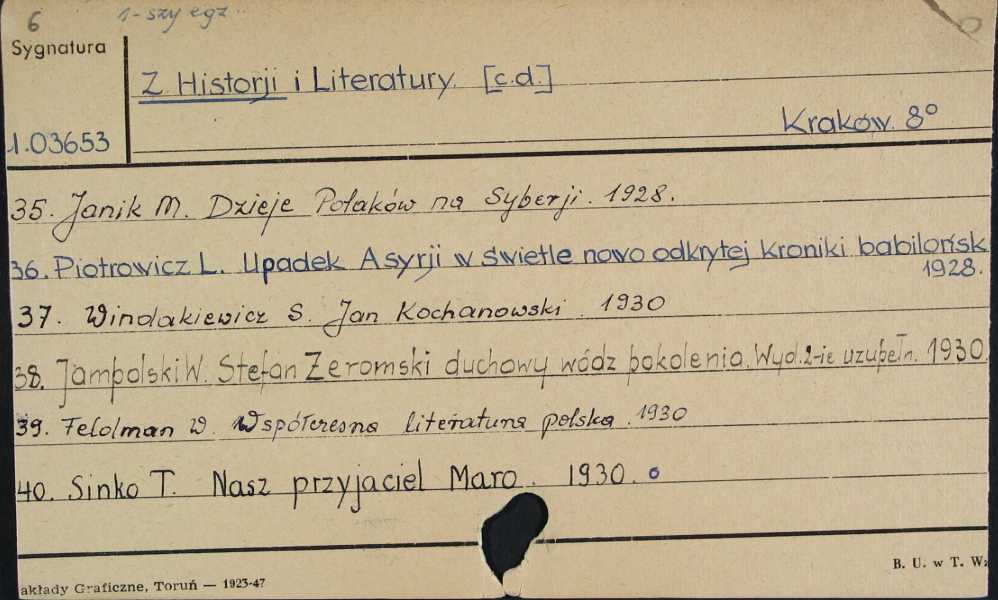 6 1-szy egz..
Sygnatura
Z Historji i Literatury. [c.d.]
Kraków 8°
1.03653
35. Janik M. Dzieje Polaków na Syberji. 1928.
36. Piotrowicz L. Upadek Asyrji w świetle nowo odkrytej kroniki babilońsk
1928.
37. Windakiewicz S. Jan Kochanowski. 1930
38. Jampolski W. Stefan Żeromski duchowy wódz pokolenia. Wyd. 2-ie uzupełn. 1930.
39. Feldman W. Współczesna literatura polska. 1930
40. Sinko T. Nasz przyjaciel Maro. 1930.
akłady Graficzne, Toruń — 1923-47
B. U. w T. Wz